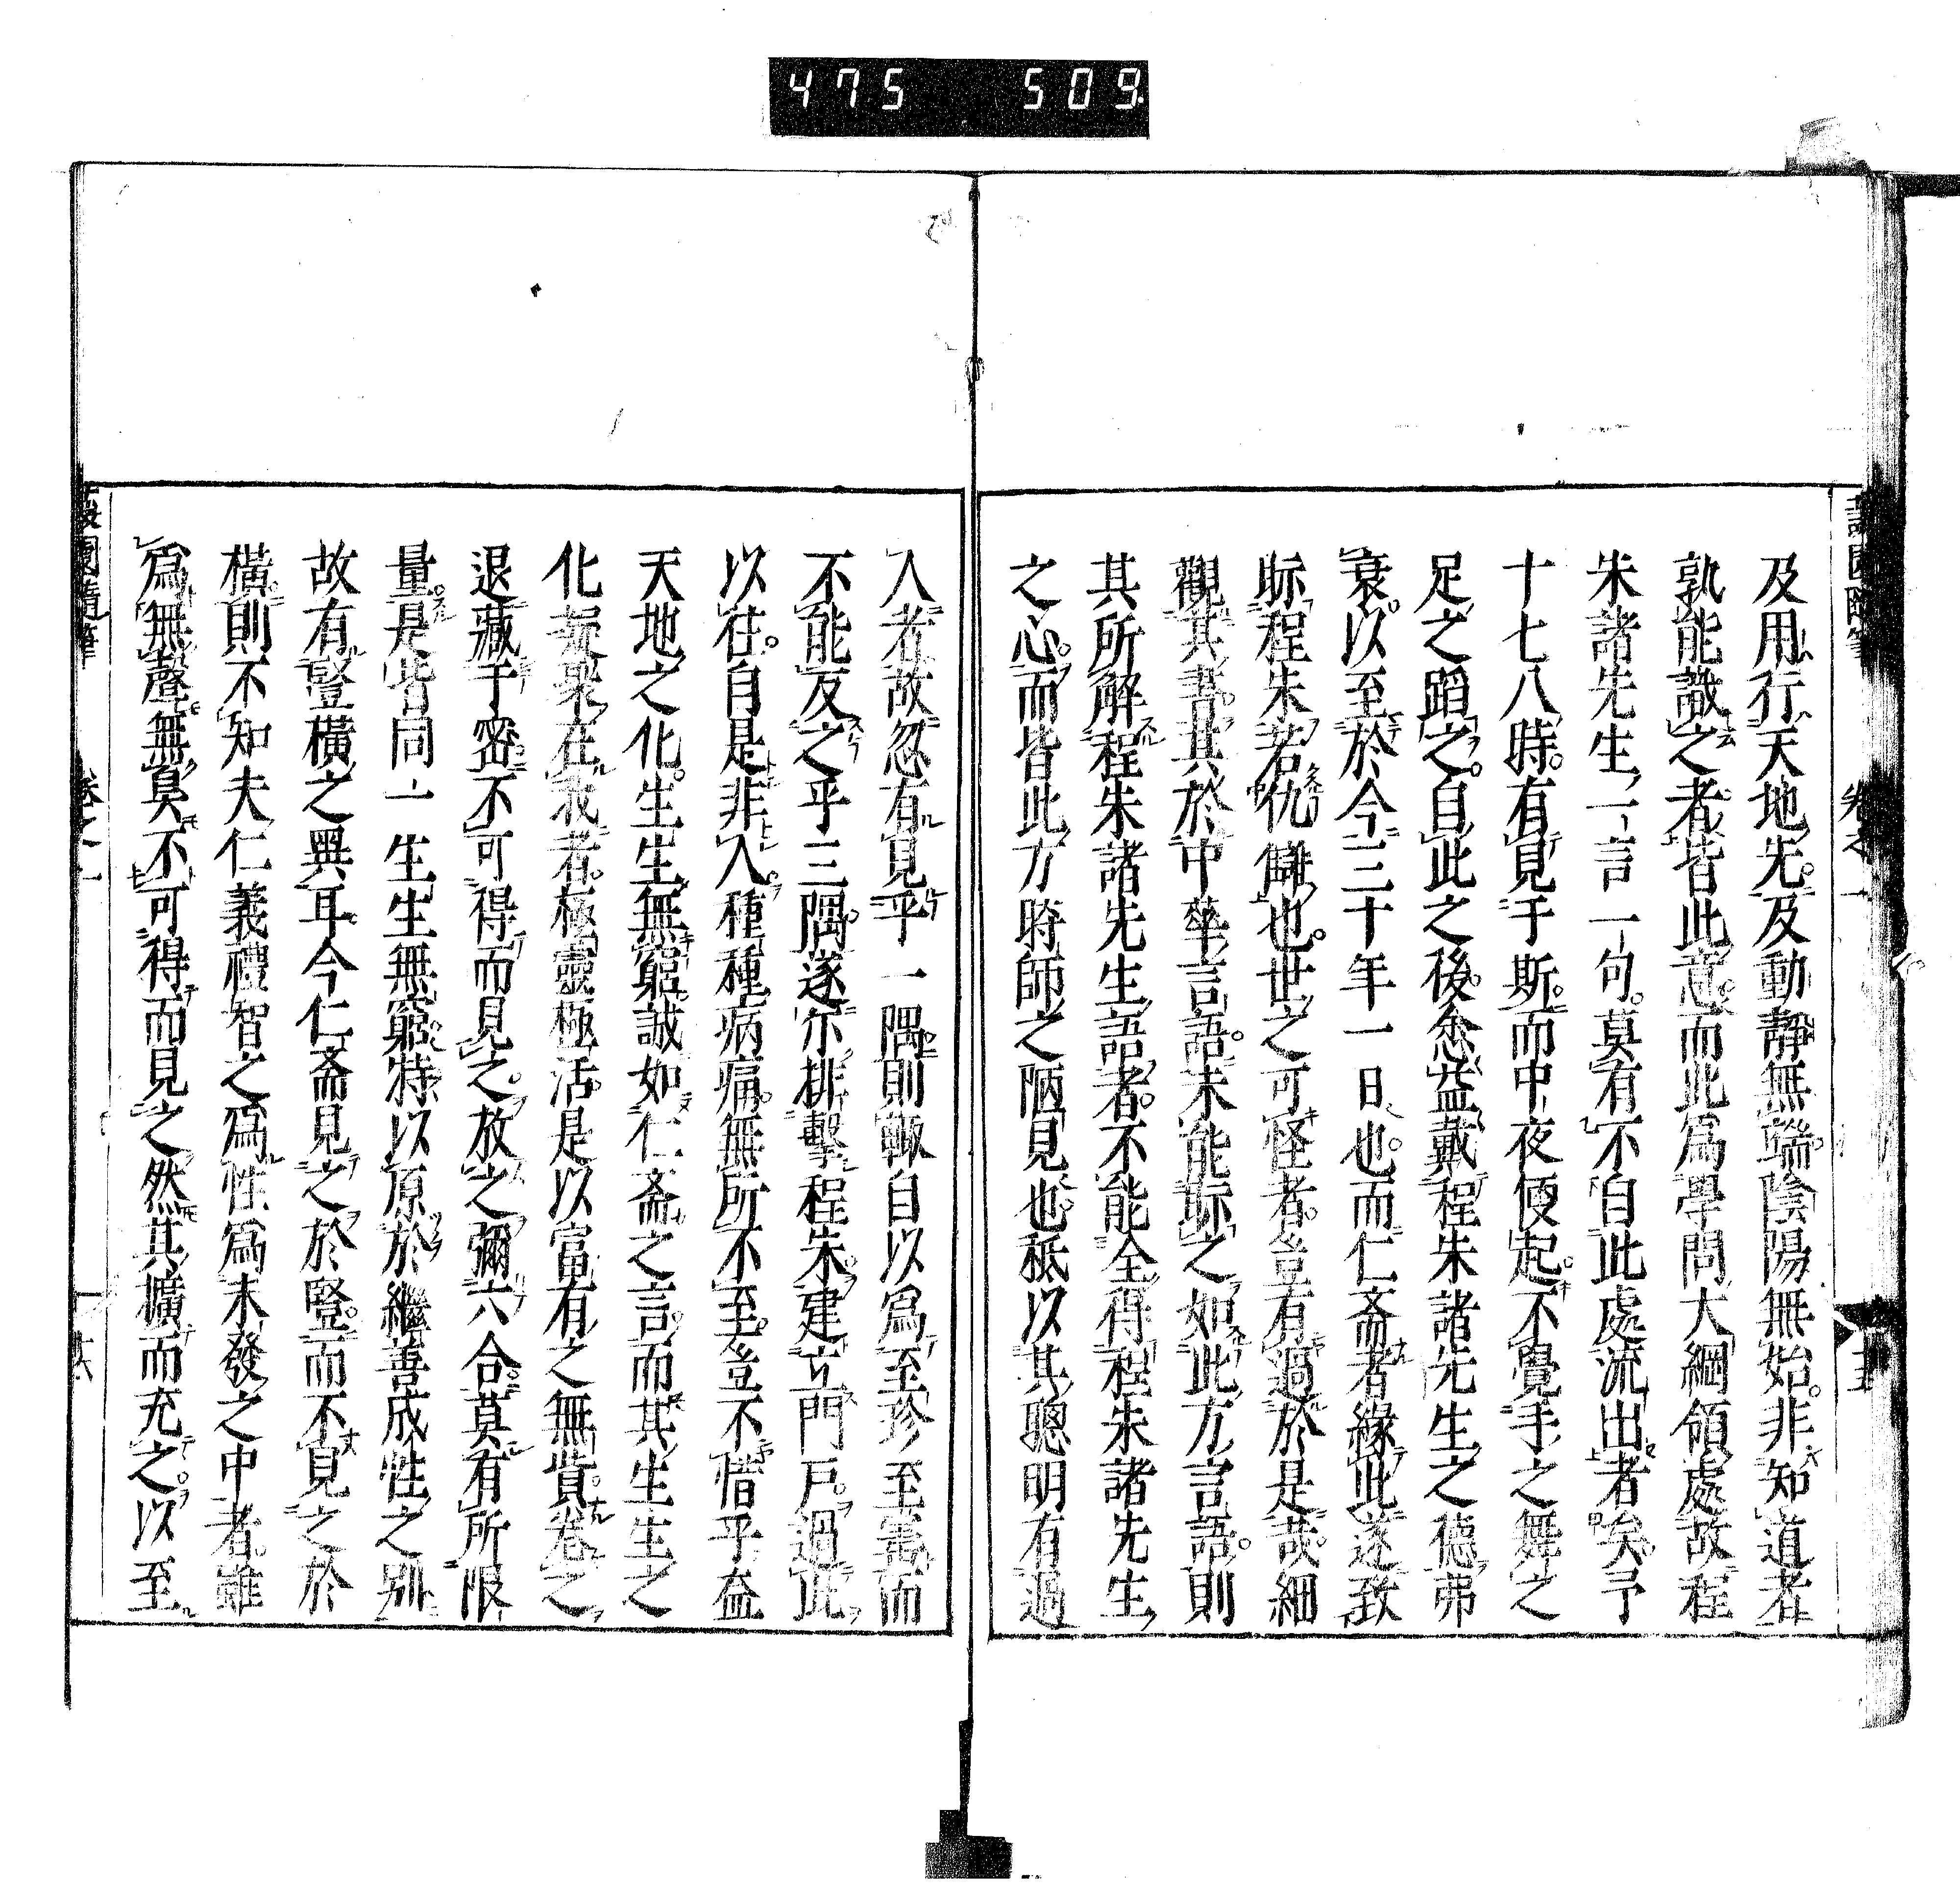 475 509
蘐園隨筆 卷之一 十五
及用行天地先及動靜無端陰陽無始非知道者
孰能識之者皆此意而此爲學問大綱領處故程
朱諸先生一言一句莫有不自此處流出者矣予
十七八時有見于斯而中夜便起不覺手之舞之
足之蹈之自此之後悆益戴程朱諸先生之德弗
衰以至於今三十年一日也而仁斎者緣此遂致
眎程朱若仇讎也世之可怪者豈有過於是哉細
觀其書其於中華言語未能眎之如此方言語則
其所解程朱諸先生語者不能全得程朱諸先生
之心而皆此方時師之陋見也秪以其聰明有過
人者故忽有見乎一隅則輙自以爲至珍至寶而
不能反之乎三隅遂尓排擊程朱建立門戶過此
以往自是非人種種病痛無所不至豈不惜乎益
天地之化生生無窮誠如仁斎之言而其生生之
化藂衆在我者極靈極活是以富有之無貲卷之
退藏于密不可得而見之放之彌六合莫有所限
量是皆同一生生無窮特以原於繼善成性之別
故有豎橫之異耳今仁斎見之於豎而不見之於
橫則不知夫仁義禮智之爲性爲未發之中者雖
爲無聲無臭不可得而見之然其擴而充之以至
蘐園隨筆 卷之一 十六